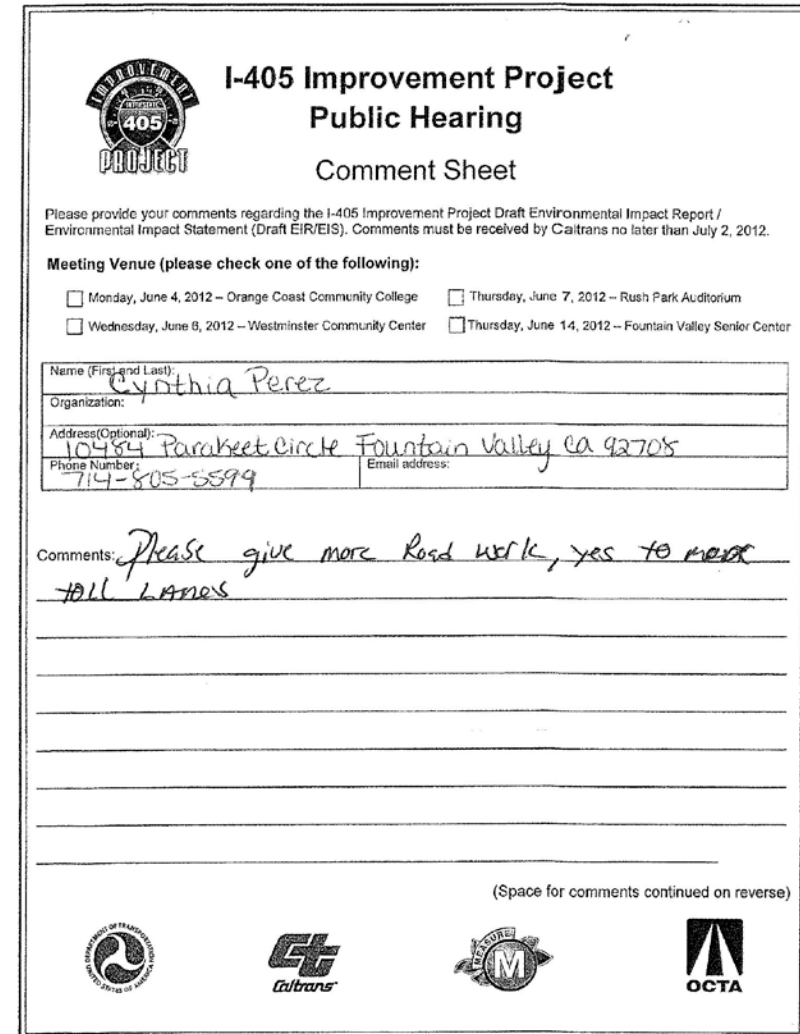 IMPROVEMENT
INTERSTATE
405
PROJECT
I-405 Improvement Project
Public Hearing
Comment Sheet
Please provide your comments regarding the I-405 Improvement Project Draft Environmental Impact Report /
Environmental Impact Statement (Draft EIR/EIS). Comments must be received by Caltrans no later than July 2, 2012.
Meeting Venue (please check one of the following):
Monday, June 4, 2012 – Orange Coast Community College
Thursday, June 7, 2012 – Rush Park Auditorium
Wednesday, June 6, 2012 – Westminster Community Center
Thursday, June 14, 2012 – Fountain Valley Senior Center
Name (First and Last):
Cynthia Perez
Organization:
Address(Optional):
10484 Parakeet Circle Fountain Valley Ca 92708
Phone Number:
714-805-5599
Email address:
Comments: Please give more Road work, yes to more
toll Lanes
(Space for comments continued on reverse)
DEPARTMENT OF TRANSPORTATION
UNITED STATES OF AMERICA
Caltrans
MEASURE
M
OCTA